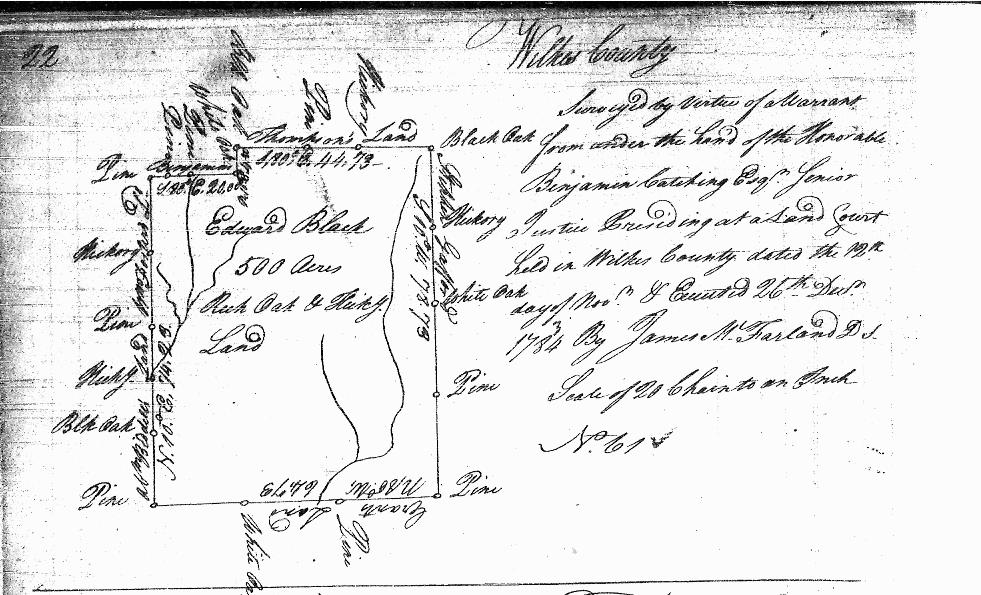 22
Wilkes County
Surveyed by Virtue of a Warrant
from under the hand of the Honorable
Benjamin Catching Esqr. Senior
Justice Presiding at a Land Court
held in Wilkes County dated the 12th
day of Novr. & Executed 26th Decr.
1784 By James McFarland D S.
Scale of 20 Chain to an Inch
No. 61
Hickory
Pine
White Oak
Pine
Thompson's Land
S.80.E. 44.73
Black Oak
Pine
Benjamin
S.80.E. 20.00
Edward Black
500 Acres
Rich Oak & Hicky.
Land
Hickory
Pine
Hicky.
Blk Oak
Pine
Land
N.10.E. 74.
Hickory
White Oak
Pine
Pine
S.10.W. 78.73
N.80.W.
64.73
Grants
Land
White Oa
Pine